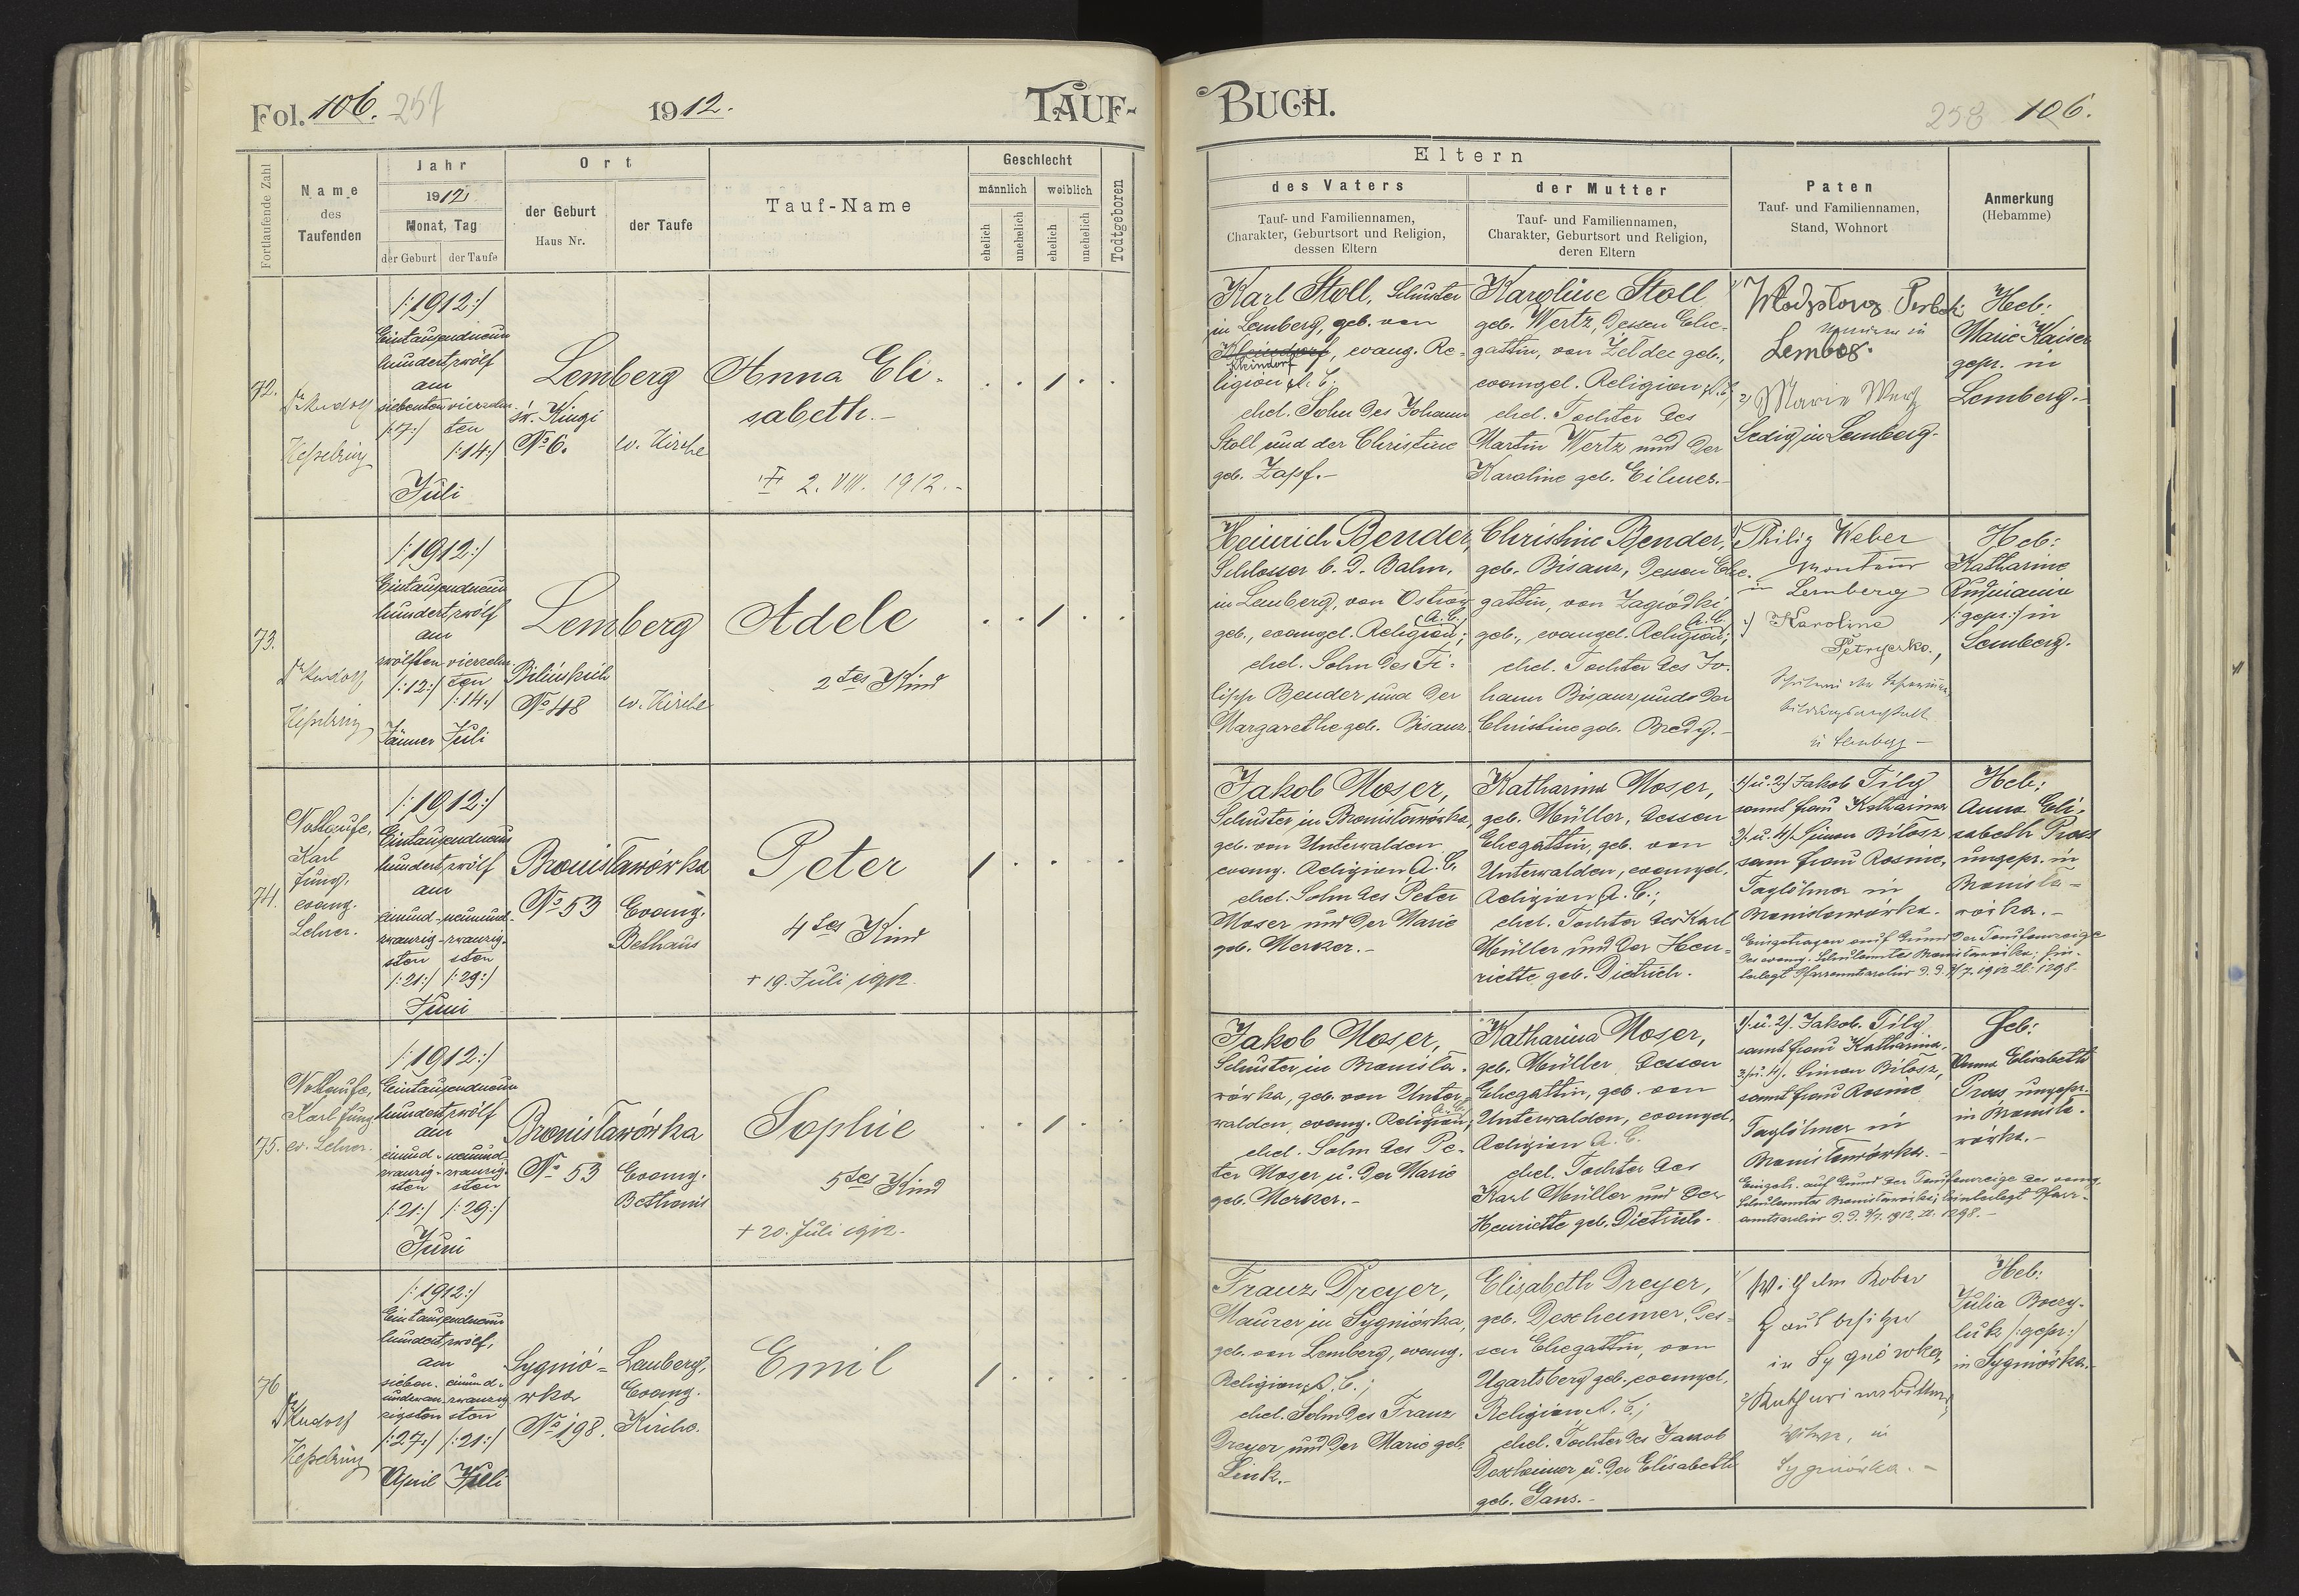 Fol. 106. 257
1912.
TAUF-
Fortlaufende Zahl
Name
des
Taufenden
Jahr
1912
Monat, Tag
der Geburt
der Taufe
Ort
der Geburt
Haus Nr.
der Taufe
Tauf-Name
Geschlecht
männlich
weiblich
ehelich
unehelich
ehelich
unehelich
Todtgeboren
72.
Dr Rudolf
Kesselring
/:1912:/
Eintausendneun
hundertzwölf
am
siebenten
/:7:/
vierzehn-
ten
/:14:/
Juli
Lemberg
św. Kingi
No 6.
ev. Kirche
Anna Eli-
sabeth.-
2. VIII. 1912.-
73.
Dr Rudolf
Kesselring
/:1912:/
Eintausendneun
hundertzwölf
am
zwölften
/:12:/
Jänner
vierzehn-
ten
/:14:/
Juli
Lemberg
Bilińskich
No 48
ev. Kirche
Adele
2tes Kind
74.
Nottaufe,
Karl
Jung,
evang.
Lehrer.
/:1912:/
Eintausendneun
hundertzwölf
am
einund-
zwanzig-
sten
/:21:/
neunund-
zwanzig-
sten
/:29:/
Juni
Bronisławówka
No 53
Evang.
Bethaus
Peter
4tes Kind
+ 19. Juli 1912.
75.
Nottaufe,
Karl Jung
ev. Lehrer.
/:1912:/
Eintausendneun
hundertzwölf
am
einund-
zwanzig-
sten
/:21:/
neunund-
zwanzig-
sten
/:29:/
Juni
Bronisławówka
No 53
Evang.
Bethaus
Sophie
5tes Kind
+ 20. Juli 1912.-
76
Dr Rudolf
Kesselring
/:1912:/
Eintausendneun
hundertzwölf,
am
sieben-
undzwan-
zigsten
/:27:/
April
einund-
zwanzig
sten
/:21:/
Juli
Sygnió-
wka
No 198.
Lemberg,
Evang.
Kirche.
Emil
BUCH.
258 106.
Eltern
des Vaters
Tauf- und Familiennamen,
Charakter, Geburtsort und Religion,
dessen Eltern
der Mutter
Tauf- und Familiennamen,
Charakter, Geburtsort und Religion,
deren Eltern
Paten
Tauf- und Familiennamen,
Stand, Wohnort
Anmerkung
(Hebamme)
Karl Stoll, Schuster
in Lemberg, geb. von
evang. Re-
ligion A. C.
ehel. Sohn des Johann
Stoll und der Christine
geb. Zapf.-
Karoline Stoll
geb. Wertz, dessen Ehe-
gattin, von Zeldec geb.,
evangel. Religion A. C.
ehel. Tochter des
Martin Wertz und der
Karoline geb. Eilmes.-
in
2) Marie
Ledig in Lemberg.
Heb:
Marie Kaiser
gepr. in
Lemberg.-
Heinrich Bender,
Schlosser b. d. Bahn,
in Lemberg, von Ostrów
geb., evangel. Religion A. C.;
ehel. Sohn des Fi-
lipp Bender und der
Margarethe geb. Bisanz.
Christine Bender,
geb. Bisanz, dessen Ehe-
gattin, von Zagródki
geb., evangel. Religion A. C.;
ehel. Tochter des Jo-
hann Bisanz und der
Christine geb. Bredy.-
Philip Weber
Monteur
in Lemberg
2) Karolina
in Lemberg -
Heb:
Katharine
/:gepr:/ in
Lemberg.
Jakob Moser,
Schuster in Bronisławówka,
geb. von Unterwalden
evang. Religion A. C.
ehel. Sohn des Peter
Moser und der Marie
geb. Merker.-
Katharina Moser,
geb. Müller, dessen
Ehegattin, geb. von
Unterwalden, evangel.
Religion A. C.;
ehel. Tochter des Karl
Müller und der Hen-
riette geb. Dietrich.
1) u. 2) Jakob Filg
samt Frau Katharina
3) u. 4). Simon Biłosz
sam Frau Rosine,
Taglöhner in
Bronisławówka.
Eingetragen auf Grund der Taufanzeige
des evang. Schulamtes Bronisławówka; hin-
terlegt Pfarramtsarchiv d. d. 3/7. 1912 Zl: 1298.
Heb:
Anna Eli-
sabeth Prass
ungepr. in
Bronisła-
wówka.-
Jakob Moser,
Schuster, in Bronisła-
wówka, geb. von Unter-
walden, evang. Religion A. C.;
ehel. Sohn des Pe-
ter Moser u. der Marie
geb. Merker.-
Katharina Moser,
geb. Müller dessen
Ehegattin, geb. von
Unterwalden, evangel.
Religion A. C.
ehel. Tochter des
Karl Müller und der
Henriette geb. Dietrich.
1). u. 2). Jakob. Filg
samt Frau Katharina.
3). u. 4). Simon Biłosz,
samt Frau Rosine
Taglöhner in
Bronisławówka.
Eingetr. auf Grund der Taufanzeige des evang.
Schulamtes Bronisławówka; hinterlegt Pfarr-
amtsarchiv d. d. 3/7. 1912. Zl. 1298.-
Heb:
Anna Elisabeth
Prass, ungepr.
in Bronisła-
wówka.-
Franz Dreyer,
Maurer, in Sygniówka,
geb. von Lemberg, evang.
Religion A. C.;
ehel. Sohn des Franz
Dreyer und der Marie geb.
Link.-
Elisabeth Dreyer,
geb. Dexheimer, des-
sen Ehegattin, von
Ugartsberg geb., evangel.
Religion A. C.;
ehel. Tochter des Jakob
Dexheimer u. der Elisabeth
geb. Gans.-
1) Wilhelm Kober
Hausbesitzer
in Sygniówka,
Witwe, in
Sygniówka.-
Heb:
Julia
/:gepr:/
in Sygniówka.-